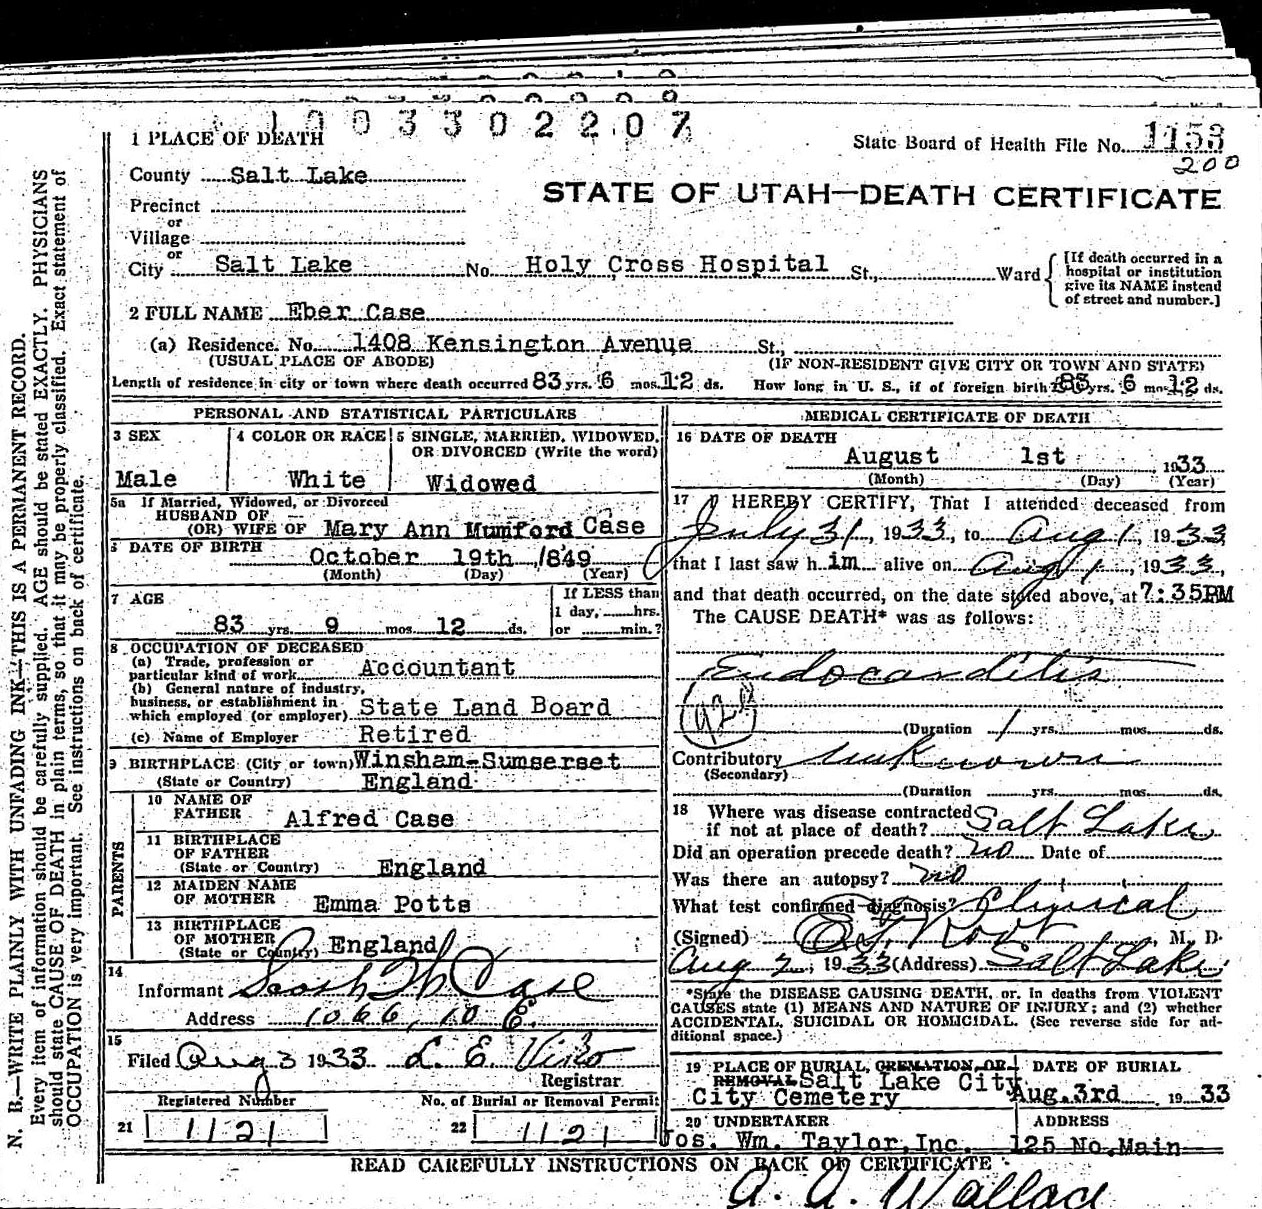 1003302207
1 PLACE OF DEATH
State Board of Health File No. 1153
200
County Salt Lake
STATE OF UTAH—DEATH CERTIFICATE
Precinct
or
Village
or
City Salt Lake No. Holy Cross Hospital St., Ward
[If death occurred in a hospital or institution give its NAME instead of street and number.]
2 FULL NAME Eber Case
(a) Residence. No. 1408 Kensington Avenue St.,
(USUAL PLACE OF ABODE) (IF NON-RESIDENT GIVE CITY OR TOWN AND STATE)
Length of residence in city or town where death occurred 83 yrs. 6 mos. 12 ds. How long in U. S., if of foreign birth? 83 yrs. 6 mos. 12 ds.
PERSONAL AND STATISTICAL PARTICULARS
3 SEX
Male
4 COLOR OR RACE
White
5 SINGLE, MARRIED, WIDOWED,
OR DIVORCED (Write the word)
Widowed
5a If Married, Widowed, or Divorced
HUSBAND OF
(OR) WIFE OF Mary Ann Mumford Case
6 DATE OF BIRTH
October 19th, 1849
(Month) (Day) (Year)
7 AGE
83 yrs. 9 mos. 12 ds.
If LESS than
1 day, hrs.
or min.?
8 OCCUPATION OF DECEASED
(a) Trade, profession or
particular kind of work Accountant
(b) General nature of industry,
business, or establishment in
which employed (or employer) State Land Board
(c) Name of Employer Retired
9 BIRTHPLACE (City or town) Winsham-Sumserset
(State or Country) England
PARENTS
10 NAME OF
FATHER Alfred Case
11 BIRTHPLACE
OF FATHER
(State or Country) England
12 MAIDEN NAME
OF MOTHER Emma Potts
13 BIRTHPLACE
OF MOTHER
(State or Country) England
14
Informant Case
Address 1066, 10 E.
15
Filed Aug 3 1933 L. E.
Registrar
Registered Number
21 1121
No. of Burial or Removal Permit
22 1121
MEDICAL CERTIFICATE OF DEATH
16 DATE OF DEATH
August 1st 1933
(Month) (Day) (Year)
17 I HEREBY CERTIFY, That I attended deceased from
July 31, 1933, to Aug 1, 1933,
that I last saw him alive on Aug 1, 1933,
and that death occurred, on the date stated above, at 7:35PM
The CAUSE DEATH* was as follows:
Endocarditis
(Duration 1 yrs. mos. ds.
Contributory unknown
(Secondary)
(Duration yrs. mos. ds.
18 Where was disease contracted
if not at place of death? Salt Lake
Did an operation precede death? no Date of
Was there an autopsy? no
What test confirmed diagnosis? Clinical
(Signed) Root, M. D.
Aug 2, 1933 (Address) Salt Lake
*State the DISEASE CAUSING DEATH, or, in deaths from VIOLENT
CAUSES state (1) MEANS AND NATURE OF INJURY; and (2) whether
ACCIDENTAL, SUICIDAL OR HOMICIDAL. (See reverse side for ad-
ditional space.)
19 PLACE OF BURIAL, CREMATION, OR
REMOVAL Salt Lake City
City Cemetery
DATE OF BURIAL
Aug. 3rd 1933
20 UNDERTAKER
Jos. Wm. Taylor, Inc.
ADDRESS
125 No. Main
READ CAREFULLY INSTRUCTIONS ON BACK OF CERTIFICATE
A. A. Wallace
N. B.—WRITE PLAINLY WITH UNFADING INK—THIS IS A PERMANENT RECORD.
Every item of information should be carefully supplied. AGE should be stated EXACTLY. PHYSICIANS
should state CAUSE OF DEATH in plain terms, so that it may be properly classified. Exact statement of
OCCUPATION is very important. See instructions on back of certificate.